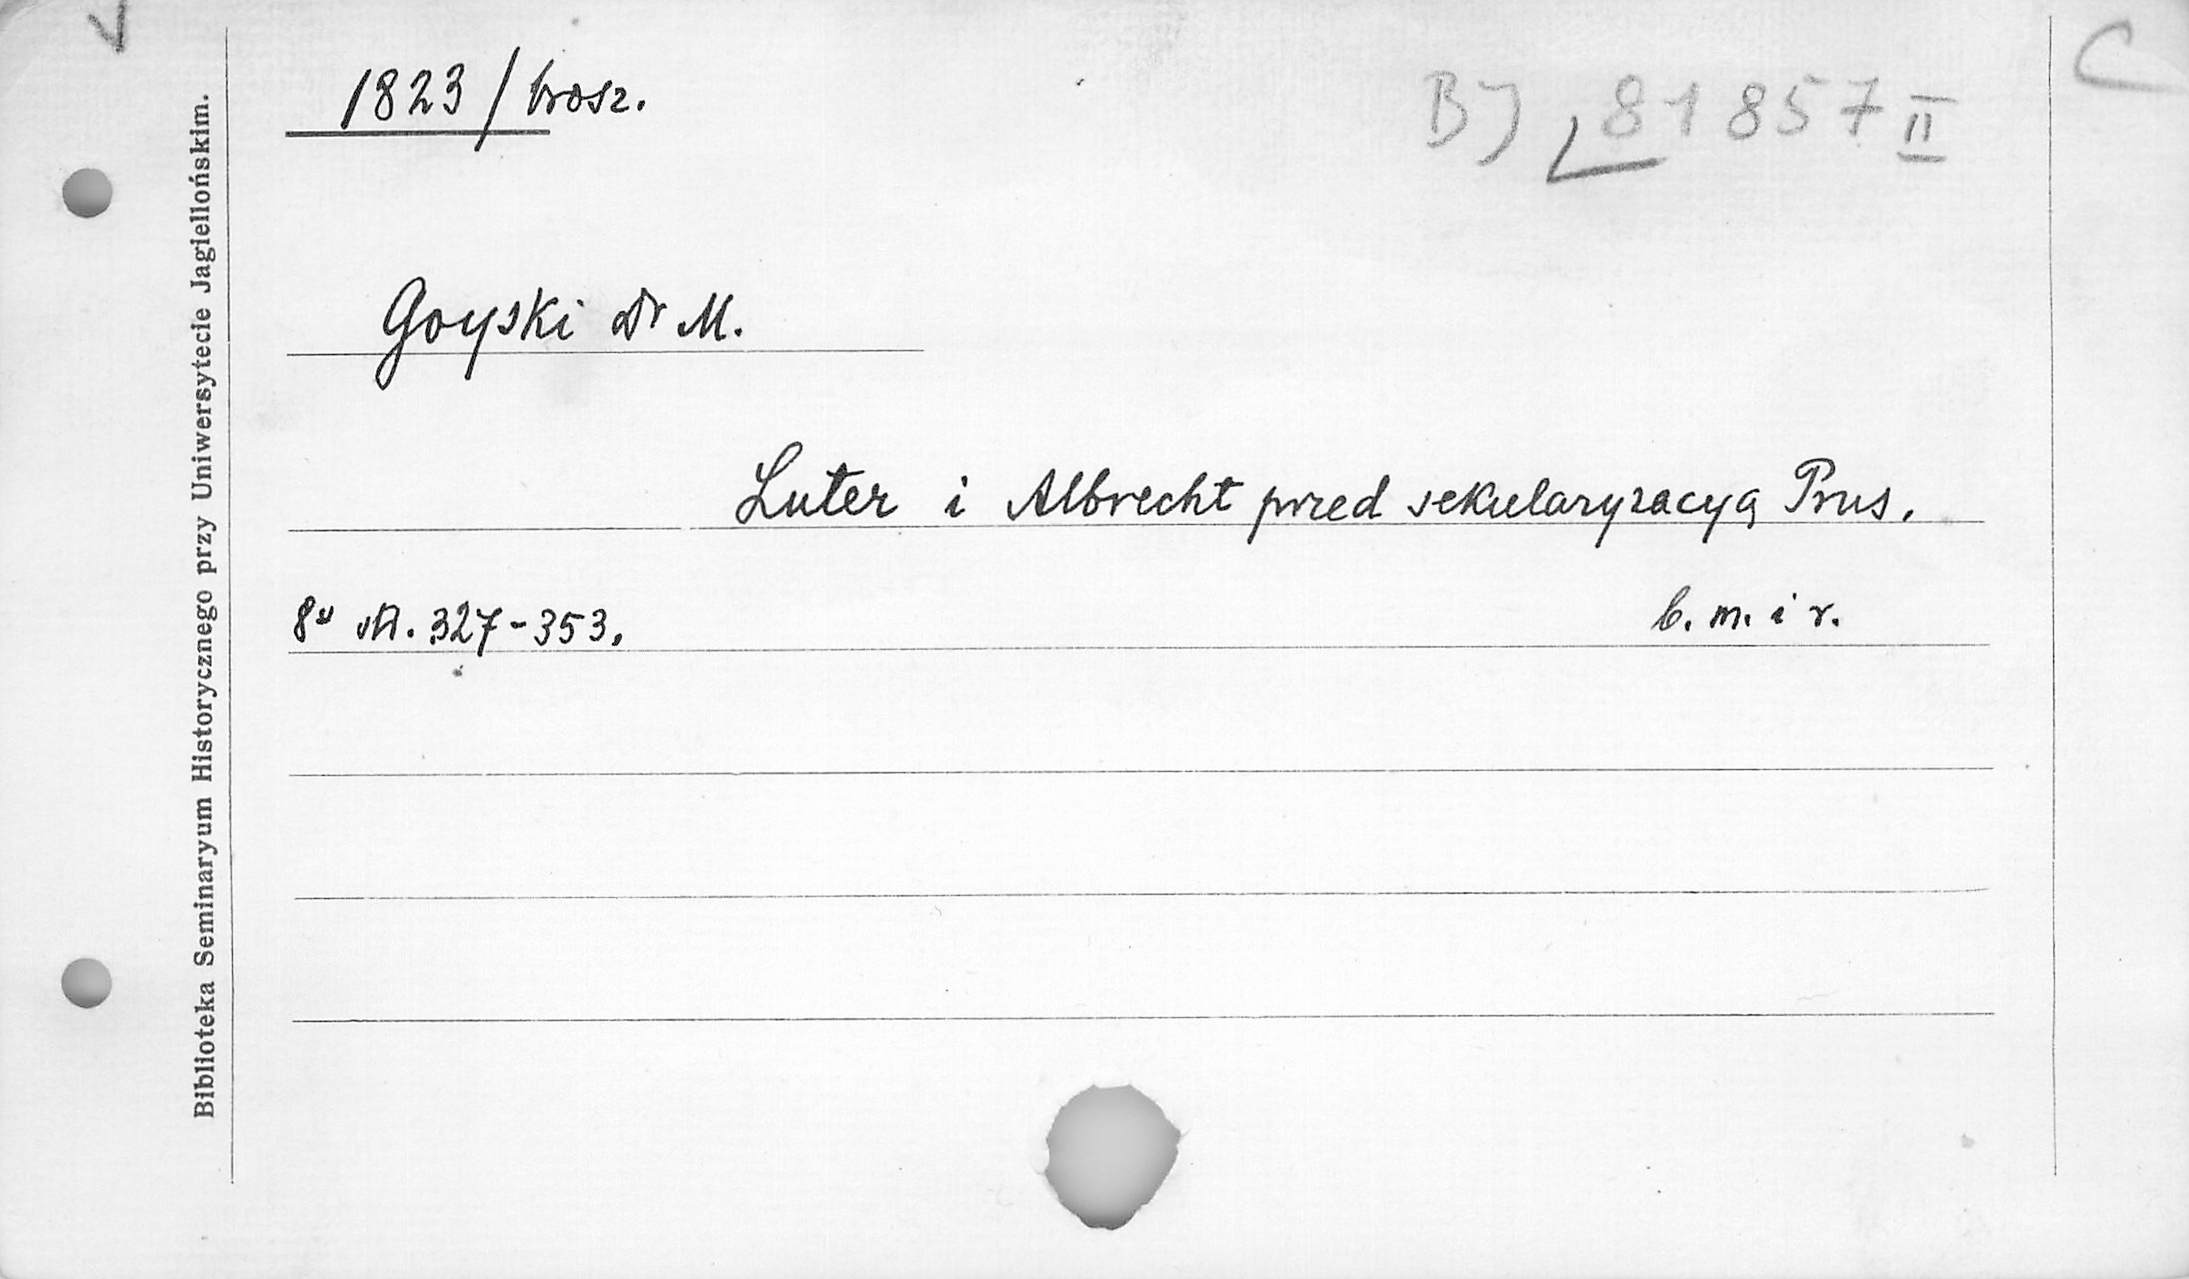 1823 / brosz.
BJ 81857 II
C
Goyski Dr M.
Luter i Albrecht przed sekularyzacyą Prus.
8° str. 327-353.
b. m. i r.
Biblioteka Seminaryum Historycznego przy Uniwersytecie Jagiellońskim.